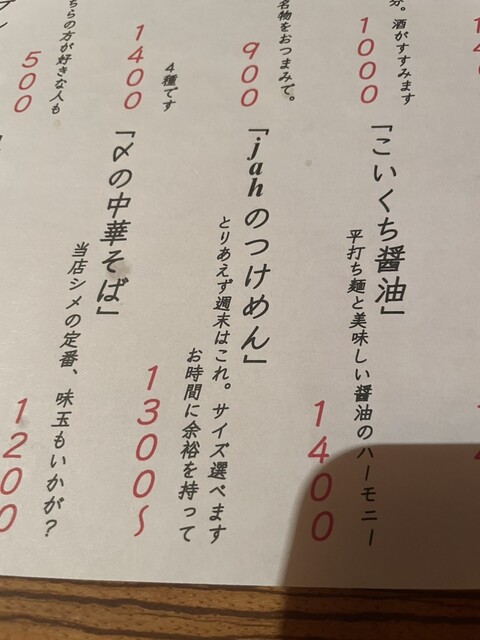 分。酒がすすみます
1000
名物をおつまみで。
900
4種です
1400
ちらの方が好きな人も
500
「こいくち醤油」
平打ち麺と美味しい醤油のハーモニー
1400
「jahのつけめん」
とりあえず週末はこれ。サイズ選べます
お時間に余裕を持って
1300～
「〆の中華そば」
当店シメの定番、味玉もいかが？
1200